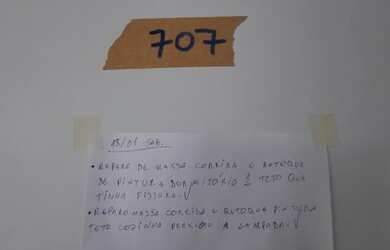 707
13/01 SAB.
• REPARO DE MASSA CORRIDA E RETOQUE
DE PINTURA DORMITÓRIO 1 TETO QUE
TINHA FISSURA. √
• REPARO MASSA CORRIDA E RETOQUE PINTURA
TETO COZINHA PROXIMO A LAMPADA. √